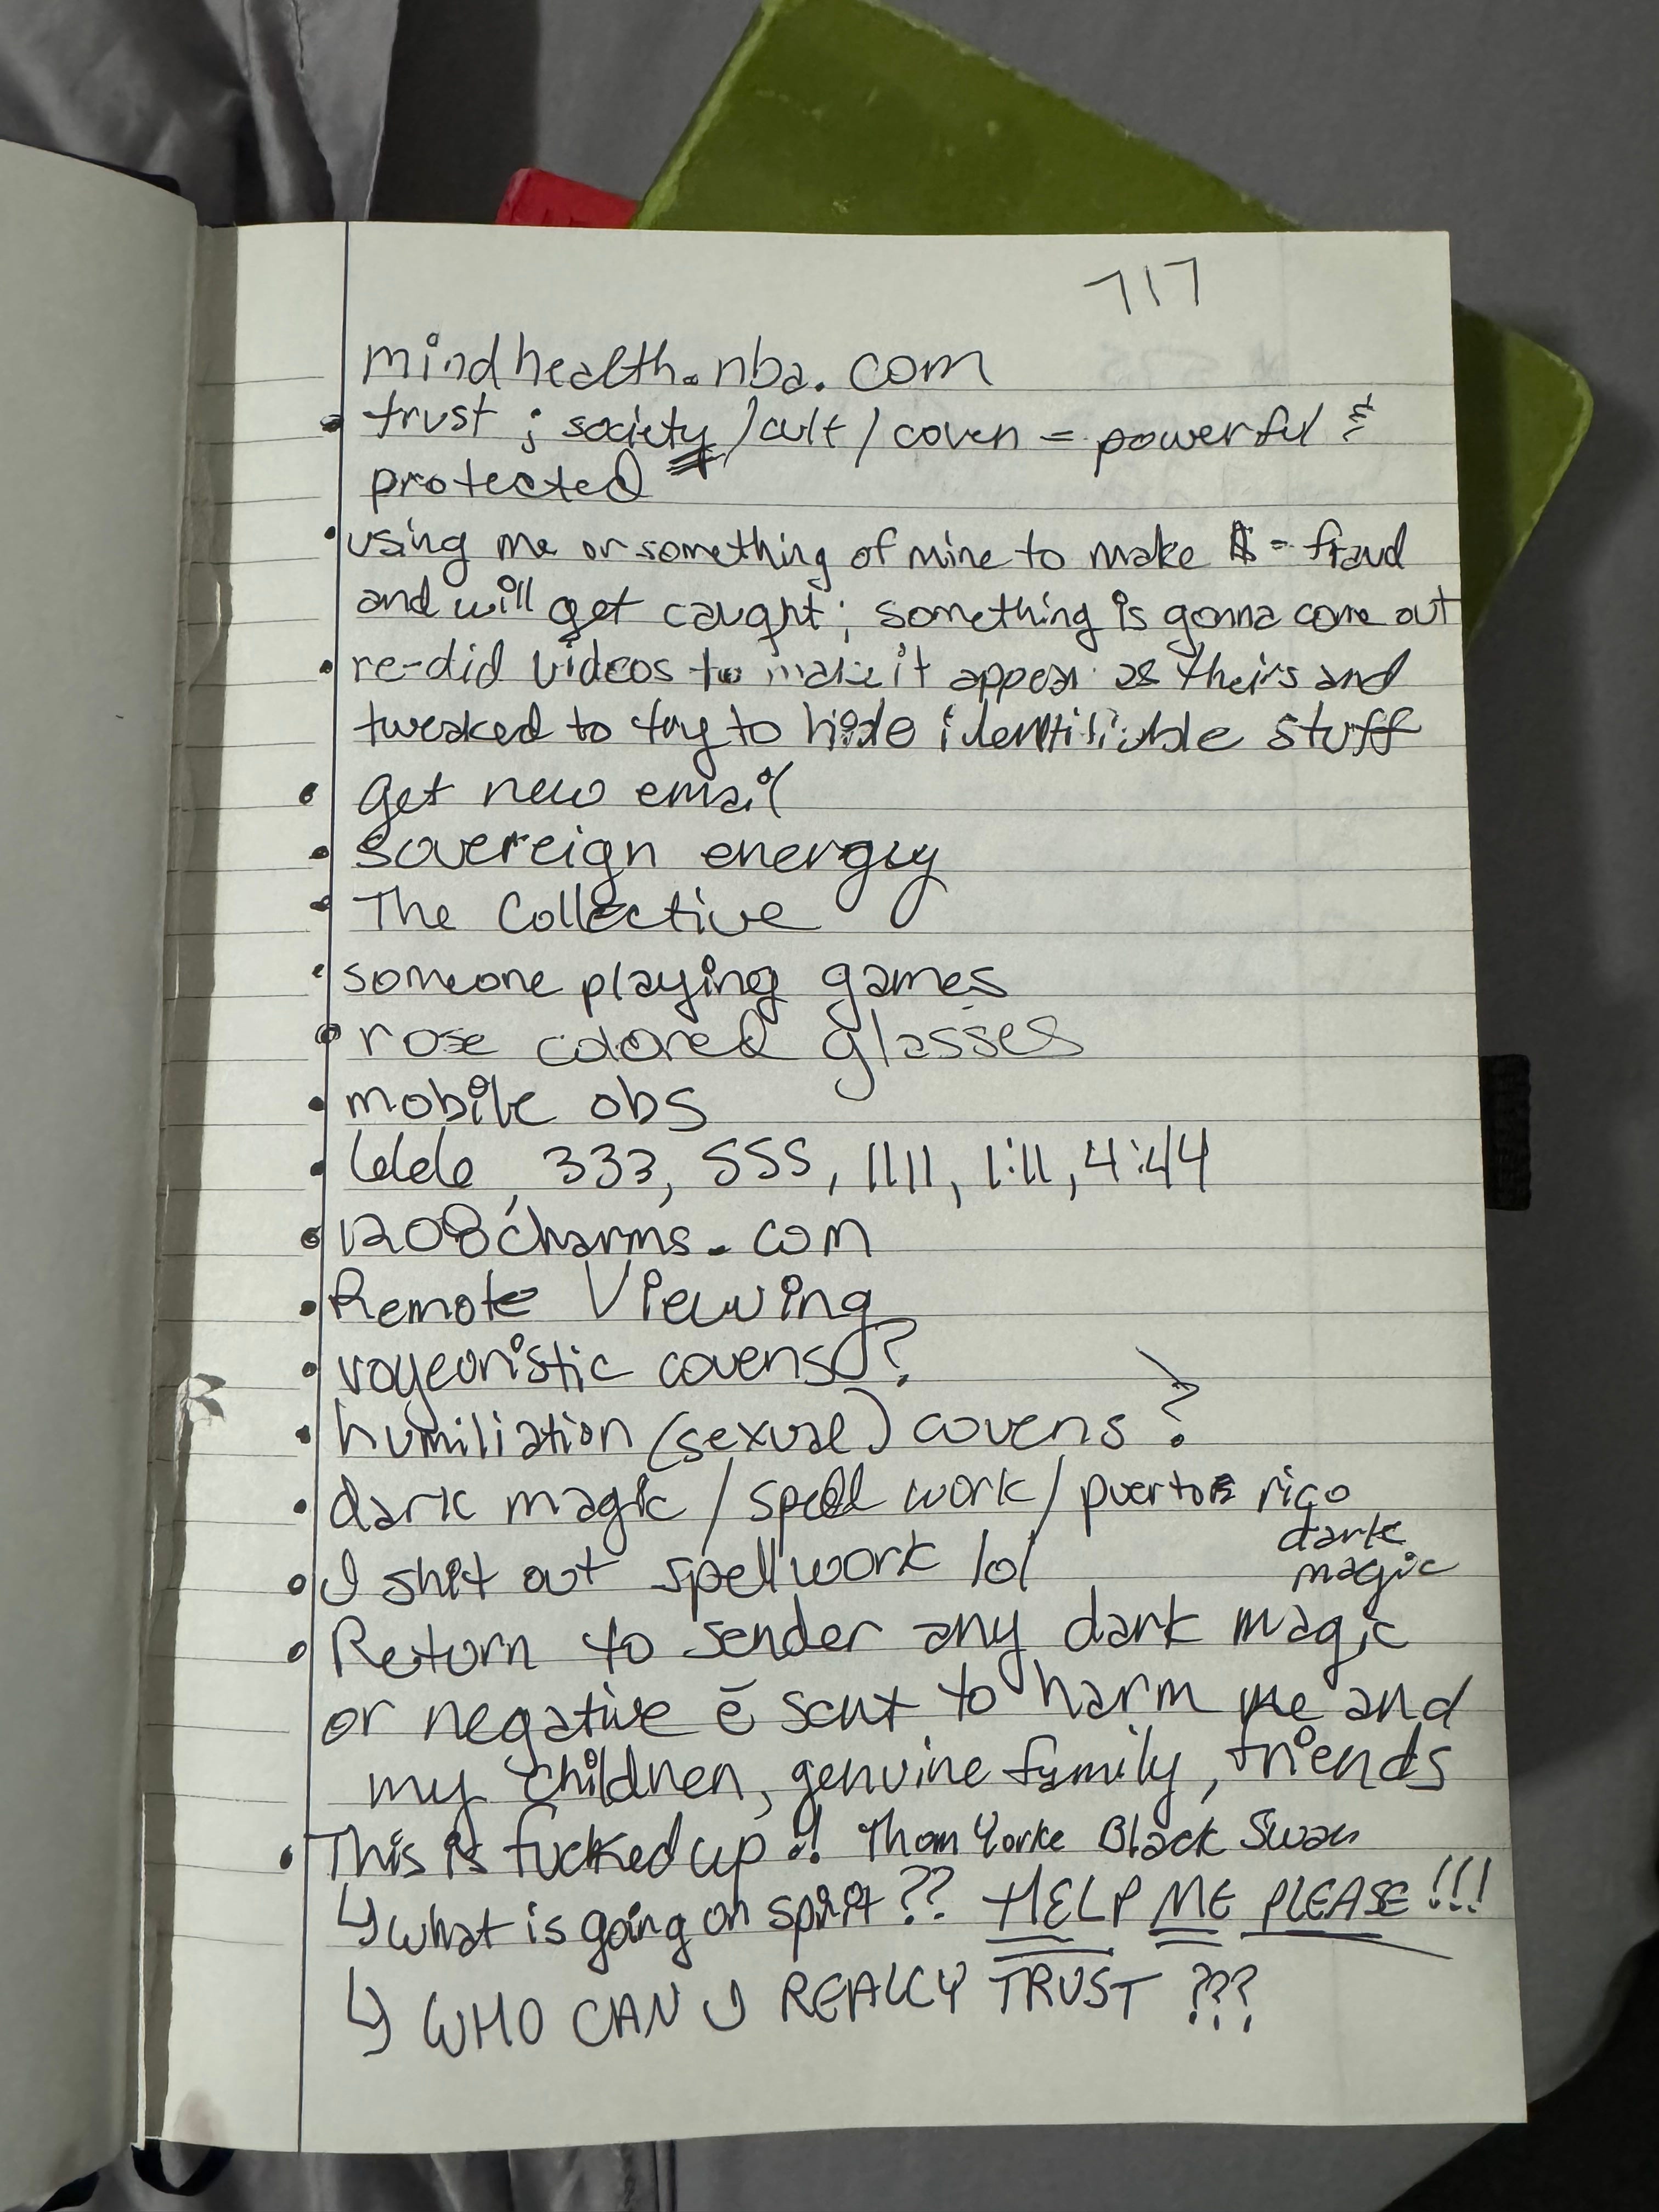 717
mindhealth.nba.com
• trust ; society /cult / coven = powerful &
protected
• using me or something of mine to make $ = fraud
and will get caught; something is gonna come out
• re-did videos to make it appear as theirs and
tweaked to try to hide identifiable stuff
• get new email
• sovereign energy
• The Collective
• someone playing games
• rose colored glasses
• mobile obs
• 666, 333, 555, 1111, 1:11, 4:44
• 1208charms.com
• Remote Viewing
• voyeuristic covens?
• humiliation (sexual) covens?
• dark magic / spell work / puerto rico
dark
magic
• I shit out spellwork lol
• Return to sender any dark magic
or negative ē sent to harm me and
my children, genuine family, friends
• This is fucked up !! Thom Yorke Black Swan
↳ what is going on spirit?? HELP ME PLEASE!!!
↳ WHO CAN I REALLY TRUST ???